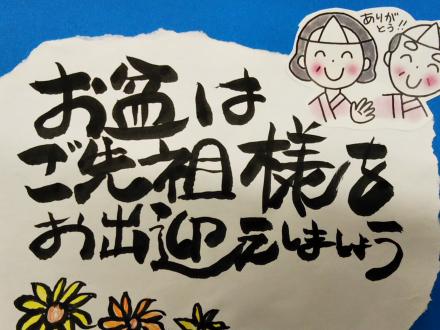 ありがとう!!
お盆は
ご先祖様を
お出迎えしましょう